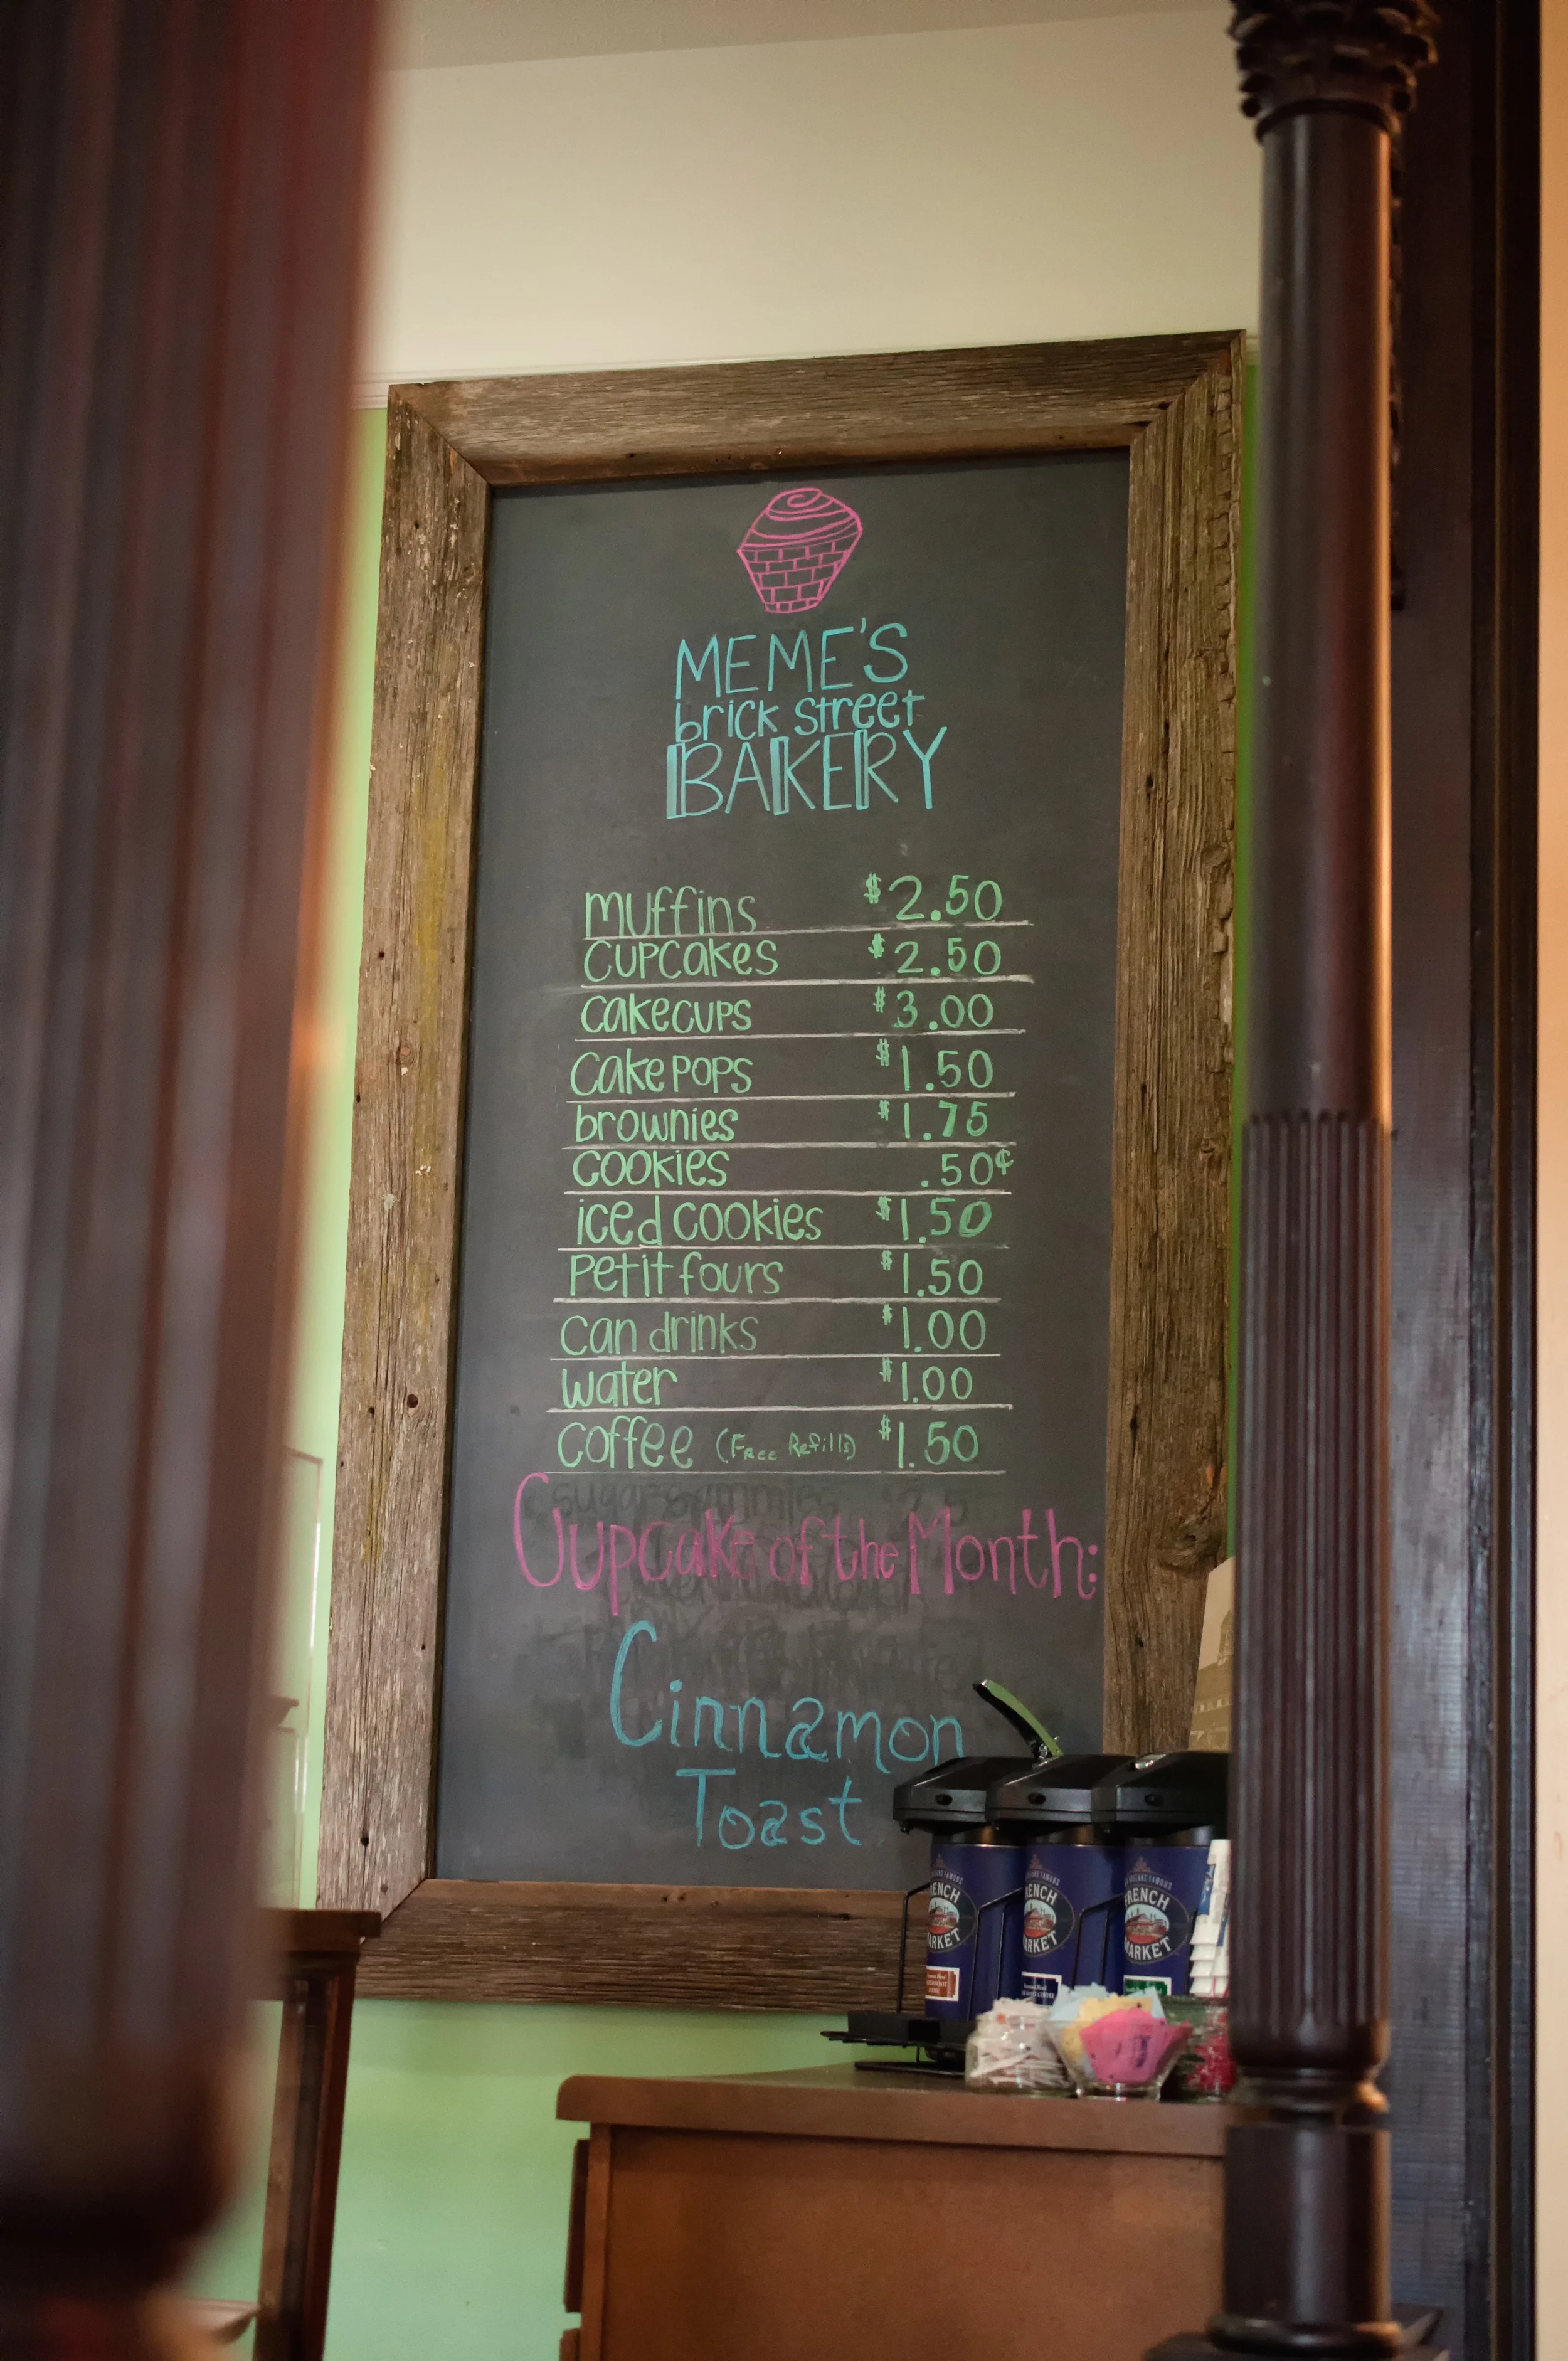 MEME'S
brick street
BAKERY
muffins $2.50
cupcakes $2.50
cakecups $3.00
cake pops $1.50
brownies $1.75
cookies .50¢
iced cookies $1.50
Petit fours $1.50
can drinks $1.00
water $1.00
coffee (Free Refills) $1.50
Cupcake of the Month:
Cinnamon
Toast
RENCH
ARKET
RENCH
ARKET
RENCH
MARKET